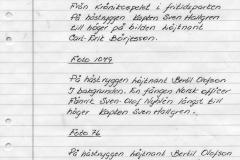 Från Krönikespelet i fritidsparken
På hästryggen Kapten Sven Hallgren
till höger på bilden löjtnant
Carl-Erik Börjesson.
Foto 1049
På hästryggen löjtnant Bertil Olofson
I bakgrunden. En fången Norsk officer
Fänrik Sven-Olof Nyblén längst till
höger Kapten Sven Hallgren.
Foto 76
På hästryggen löjtnant Bertil Olofson